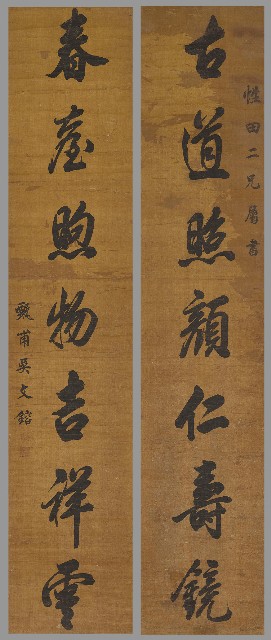 性田二兄屬書
古道照顏仁壽鏡
春臺煦物吉祥雲
甄甫吳文鎔